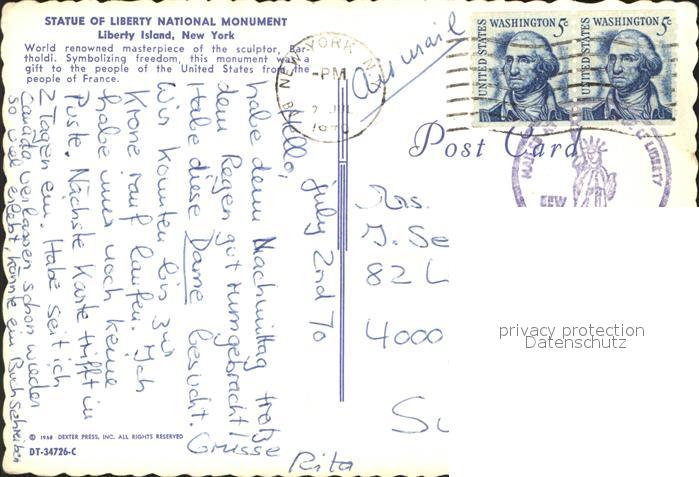 STATUE OF LIBERTY NATIONAL MONUMENT
Liberty Island, New York
World renowned masterpiece of the sculptor, Bar-
tholdi. Symbolizing freedom, this monument was a
gift to the people of the United States from the
people of France.
NEW YORK, N.
-PM
2 JUL
1970
Air mail
UNITED STATES
WASHINGTON 5c
UNITED STATES
WASHINGTON 5c
Post Card
LIBERTY
July 2nd 70
Hello,
habe den Nachmittag trotz
dem Regen gut rumgebracht!
Habe diese Dame besucht.
Wir konnten bis zur
Krone rauf laufen. Ich
habe immer noch keine
Puste. Nächste Karte trifft in
2 Tagen ein. Habe seit ich
Canada verlassen schon wieder
so viel erlebt, könnte ein Buch schreiben
Grüsse
Rita
Mrs.
J. Se
82 L
4000
privacy protection
Datenschutz
© 1968 DEXTER PRESS, INC. ALL RIGHTS RESERVED
DT-34726-C